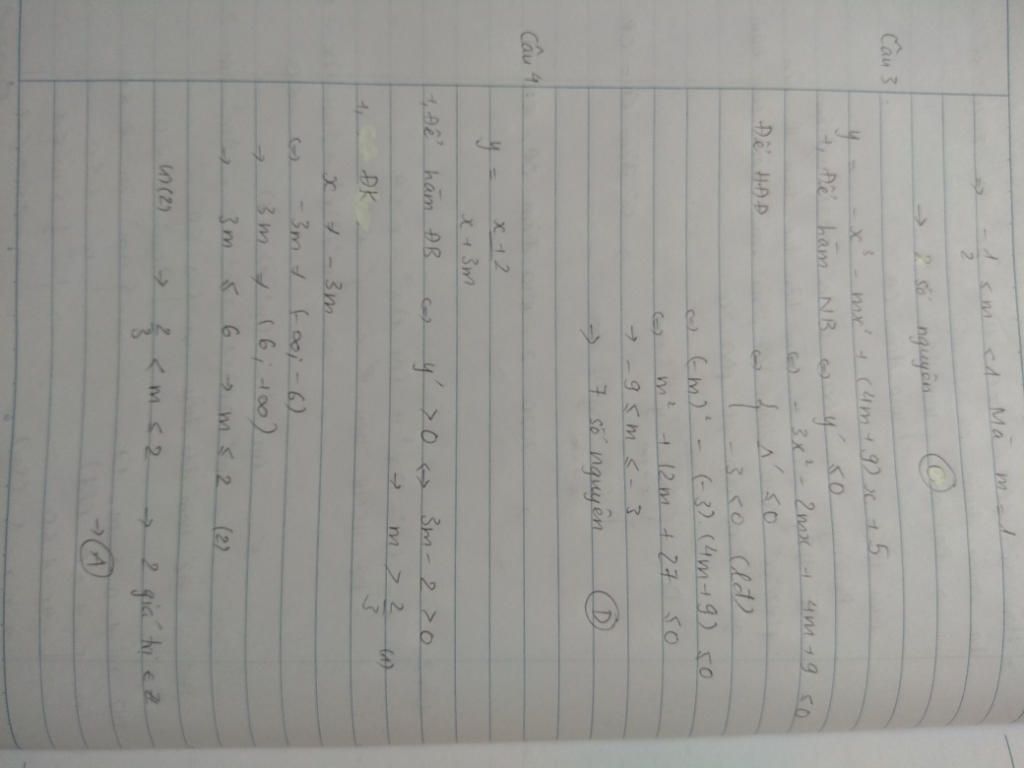 → -1/2 ≤ m < 1 Mà m = 1
→ 2 số nguyên C
Câu 3
y = -x³ - mx² + (4m+9)x + 5
+, Để hàm NB ⇔ y' ≤ 0
⇔ -3x² - 2mx + 4m+9 ≤ 0
Để HĐD ⇔ { Δ' ≤ 0
-3 ≤ 0 (lđ)
⇔ (-m)² - (-3)(4m+9) ≤ 0
⇔ m² + 12m + 27 ≤ 0
→ -9 ≤ m ≤ -3
→ 7 số nguyên D
Câu 4
y = (x+2)/(x+3m)
+, Để hàm ĐB ⇔ y' > 0 ⇔ 3m - 2 > 0
→ m > 2/3 (1)
+, ĐK
x ≠ -3m
⇔ -3m ∉ (-∞; -6)
→ 3m ∉ (6; +∞)
→ 3m ≤ 6 → m ≤ 2 (2)
(1)(2) → 2/3 < m ≤ 2 → 2 giá trị ∈ Z
→ A